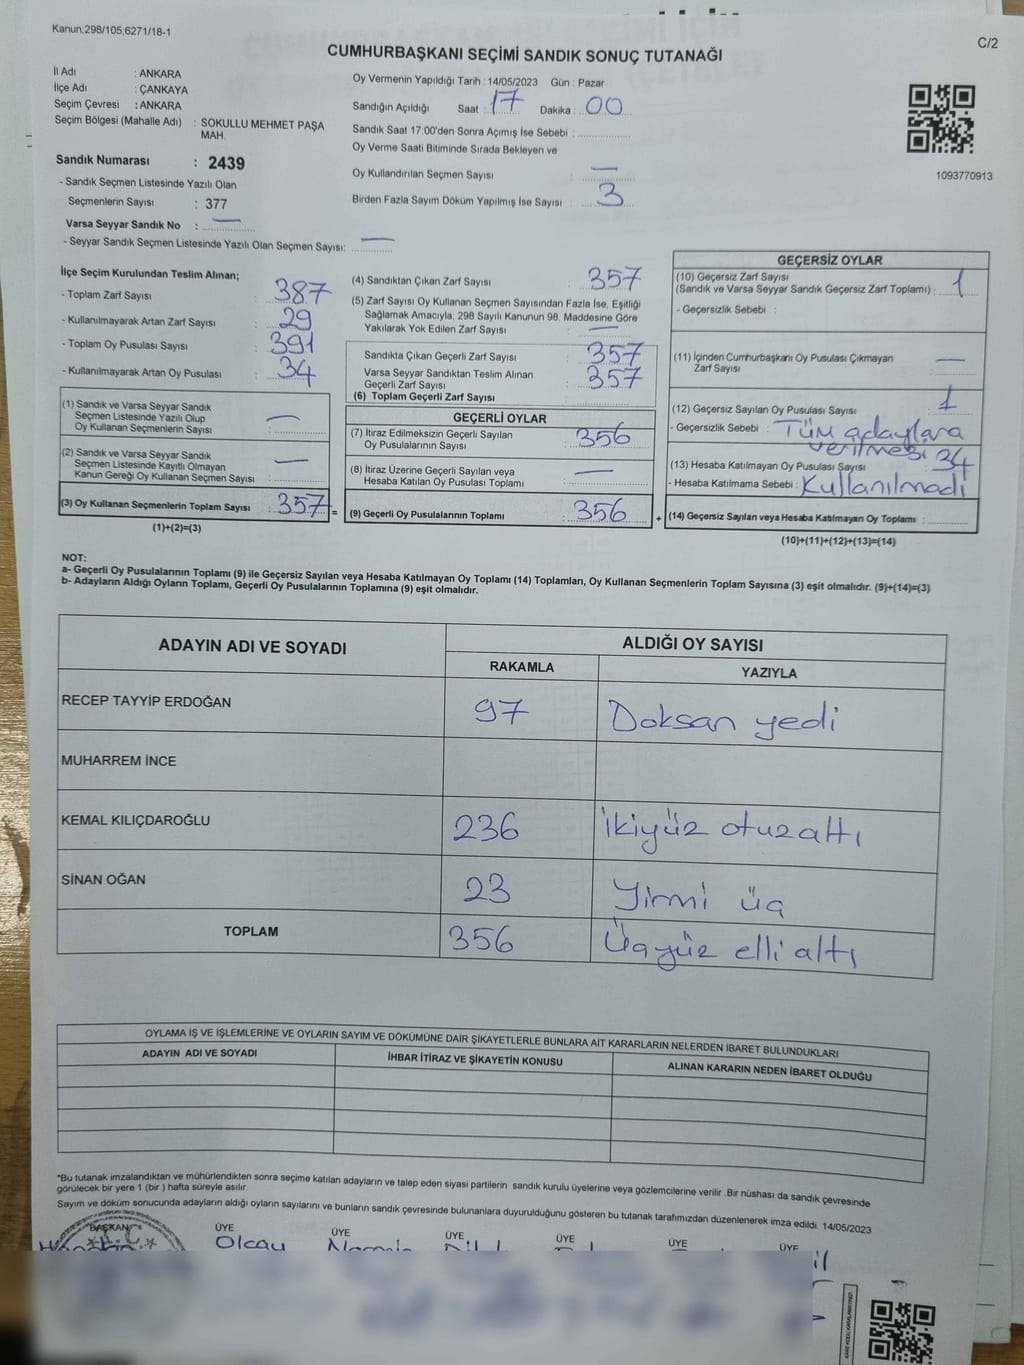 Kanun;298/105;6271/18-1
C/2
CUMHURBAŞKANI SEÇİMİ SANDIK SONUÇ TUTANAĞI
İl Adı : ANKARA
İlçe Adı : ÇANKAYA
Seçim Çevresi : ANKARA
Seçim Bölgesi (Mahalle Adı) : SOKULLU MEHMET PAŞA
MAH.
Sandık Numarası : 2439
- Sandık Seçmen Listesinde Yazılı Olan
Seçmenlerin Sayısı : 377
Varsa Seyyar Sandık No : —
- Seyyar Sandık Seçmen Listesinde Yazılı Olan Seçmen Sayısı: —
Oy Vermenin Yapıldığı Tarih : 14/05/2023 Gün : Pazar
Sandığın Açıldığı Saat : 17 Dakika : 00
Sandık Saat 17:00'den Sonra Açımış İse Sebebi :
Oy Verme Saati Bitiminde Sırada Bekleyen ve
Oy Kullandırılan Seçmen Sayısı : —
Birden Fazla Sayım Döküm Yapılmış İse Sayısı : 3
1093770913
İlçe Seçim Kurulundan Teslim Alınan;
- Toplam Zarf Sayısı : 387
- Kullanılmayarak Artan Zarf Sayısı : 29
- Toplam Oy Pusulası Sayısı : 391
- Kullanılmayarak Artan Oy Pusulası : 34
(1) Sandık ve Varsa Seyyar Sandık
Seçmen Listesinde Yazılı Olup
Oy Kullanan Seçmenlerin Sayısı : —
(2) Sandık ve Varsa Seyyar Sandık
Seçmen Listesinde Kayıtlı Olmayan
Kanun Gereği Oy Kullanan Seçmen Sayısı : —
(3) Oy Kullanan Seçmenlerin Toplam Sayısı : 357 =
(1)+(2)=(3)
(4) Sandıktan Çıkan Zarf Sayısı : 357
(5) Zarf Sayısı Oy Kullanan Seçmen Sayısından Fazla İse, Eşitliği
Sağlamak Amacıyla, 298 Sayılı Kanunun 98. Maddesine Göre
Yakılarak Yok Edilen Zarf Sayısı : —
Sandıkta Çıkan Geçerli Zarf Sayısı : 357
Varsa Seyyar Sandıktan Teslim Alınan
Geçerli Zarf Sayısı : 357
(6) Toplam Geçerli Zarf Sayısı :
GEÇERLİ OYLAR
(7) İtiraz Edilmeksizin Geçerli Sayılan
Oy Pusulalarının Sayısı : 356
(8) İtiraz Üzerine Geçerli Sayılan veya
Hesaba Katılan Oy Pusulası Toplamı : —
(9) Geçerli Oy Pusulalarının Toplamı : 356 +
GEÇERSİZ OYLAR
(10) Geçersiz Zarf Sayısı
(Sandık ve Varsa Seyyar Sandık Geçersiz Zarf Toplamı) : 1
- Geçersizlik Sebebi :
(11) İçinden Cumhurbaşkanı Oy Pusulası Çıkmayan
Zarf Sayısı : —
(12) Geçersiz Sayılan Oy Pusulası Sayısı : 1
- Geçersizlik Sebebi : Tüm adaylara
verilmesi
(13) Hesaba Katılmayan Oy Pusulası Sayısı : 34
- Hesaba Katılmama Sebebi : Kullanılmadı
(14) Geçersiz Sayılan veya Hesaba Katılmayan Oy Toplamı :
(10)+(11)+(12)+(13)=(14)
NOT:
a- Geçerli Oy Pusulalarının Toplamı (9) ile Geçersiz Sayılan veya Hesaba Katılmayan Oy Toplamı (14) Toplamları, Oy Kullanan Seçmenlerin Toplam Sayısına (3) eşit olmalıdır. (9)+(14)=(3)
b- Adayların Aldığı Oyların Toplamı, Geçerli Oy Pusulalarının Toplamına (9) eşit olmalıdır.
ADAYIN ADI VE SOYADI
ALDIĞI OY SAYISI
RAKAMLA YAZIYLA
RECEP TAYYİP ERDOĞAN 97 Doksan yedi
MUHARREM İNCE
KEMAL KILIÇDAROĞLU 236 İkiyüz otuzaltı
SİNAN OĞAN 23 Yirmi üç
TOPLAM 356 Üçyüz elli altı
OYLAMA İŞ VE İŞLEMLERİNE VE OYLARIN SAYIM VE DÖKÜMÜNE DAİR ŞİKAYETLERLE BUNLARA AİT KARARLARIN NELERDEN İBARET BULUNDUKLARI
ADAYIN ADI VE SOYADI İHBAR İTİRAZ VE ŞİKAYETİN KONUSU ALINAN KARARIN NEDEN İBARET OLDUĞU
*Bu tutanak imzalandıktan ve mühürlendikten sonra seçime katılan adayların ve talep eden siyasi partilerin sandık kurulu üyelerine veya gözlemcilerine verilir .Bir nüshası da sandık çevresinde
görülecek bir yere 1 (bir ) hafta süreyle asılır.
Sayım ve döküm sonucunda adayların aldığı oyların sayılarını ve bunların sandık çevresinde bulunanlara duyurulduğunu gösteren bu tutanak tarafımızdan düzenlenerek imza edildi. 14/05/2023
BAŞKAN ÜYE ÜYE ÜYE ÜYE ÜYE ÜYE
Olcay